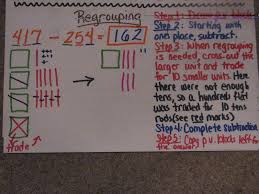 Regrouping
417 - 254 = 162
Trade
Step 1:
Step 2: Starting with
ones place, subtract.
Step 3: When regrouping
is needed, cross-out the
larger unit and trade
for 10 smaller units. Here
there were not enough
tens, so a hundred flat
was traded for 10 tens
rods (see red marks)
Step 4: Complete subtraction
Step 5: Copy p.v. blocks left for
the answer.